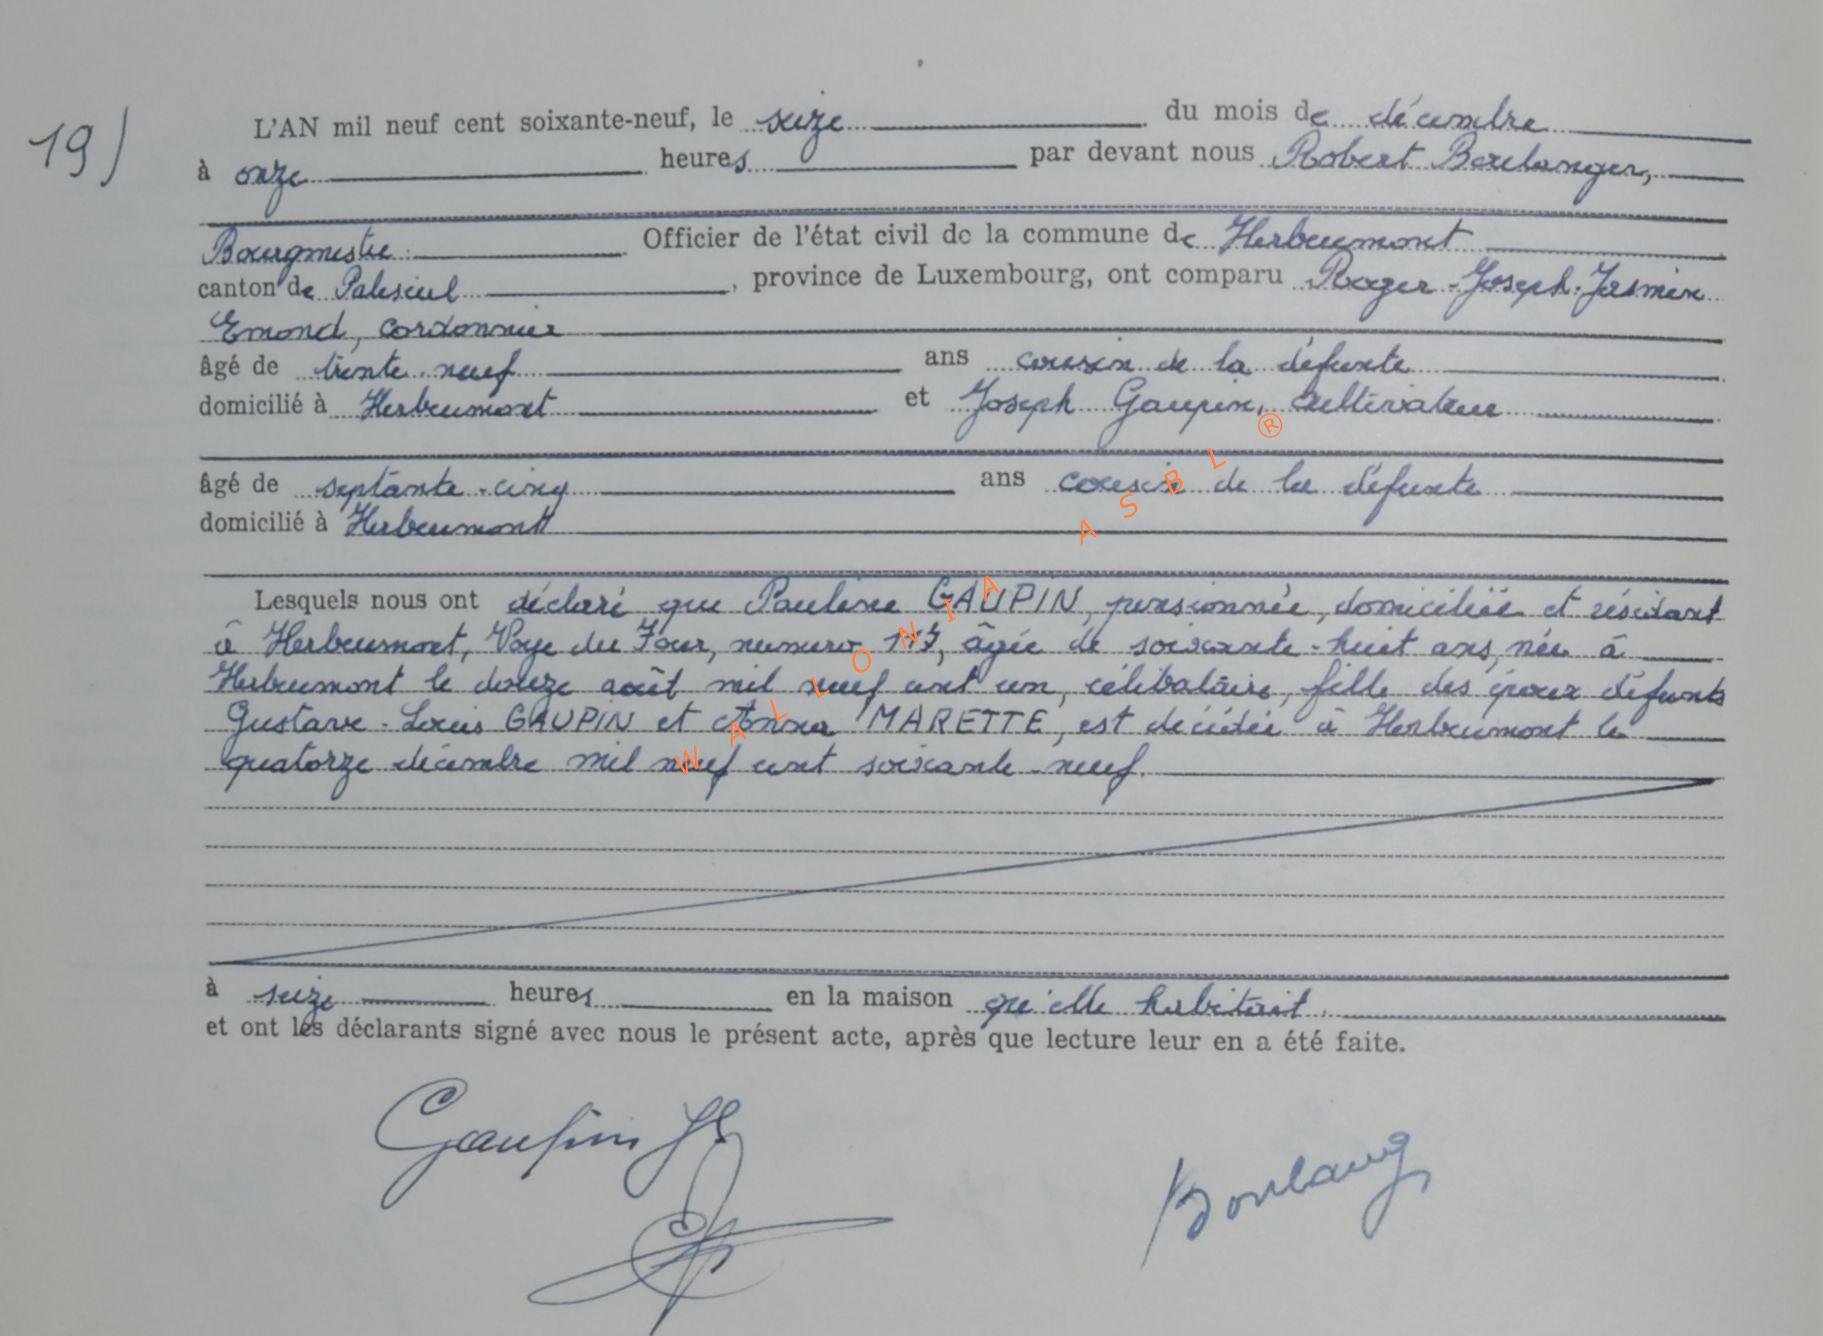 19)
L'AN mil neuf cent soixante-neuf, le seize du mois de décembre
à onze heures par devant nous Robert Boulanger,
Bourgmestre Officier de l'état civil de la commune de Herbeumont
canton de Paliseul, province de Luxembourg, ont comparu Roger-Joseph-Jasmin
Emond, cordonnier
âgé de trente-neuf ans cousin de la défunte
domicilié à Herbeumont et Joseph Gaupin, cultivateur
âgé de septante-cinq ans cousin de la défunte
domicilié à Herbeumont
Lesquels nous ont déclaré que Pauline GAUPIN, pensionnée, domiciliée et résidant
à Herbeumont, Voye du Four, numéro, âgée de soixante-huit ans, née à
Herbeumont le douze août mil neuf cent un, célibataire, fille des époux défunts
Gustave-Louis GAUPIN et Anna MARETTE, est décédée à Herbeumont le
quatorze décembre mil neuf cent soixante-neuf.
à seize heures en la maison qu'elle habitait.
et ont les déclarants signé avec nous le présent acte, après que lecture leur en a été faite.
Gaupin Js
Boulang
WALLONIA ASBL ®